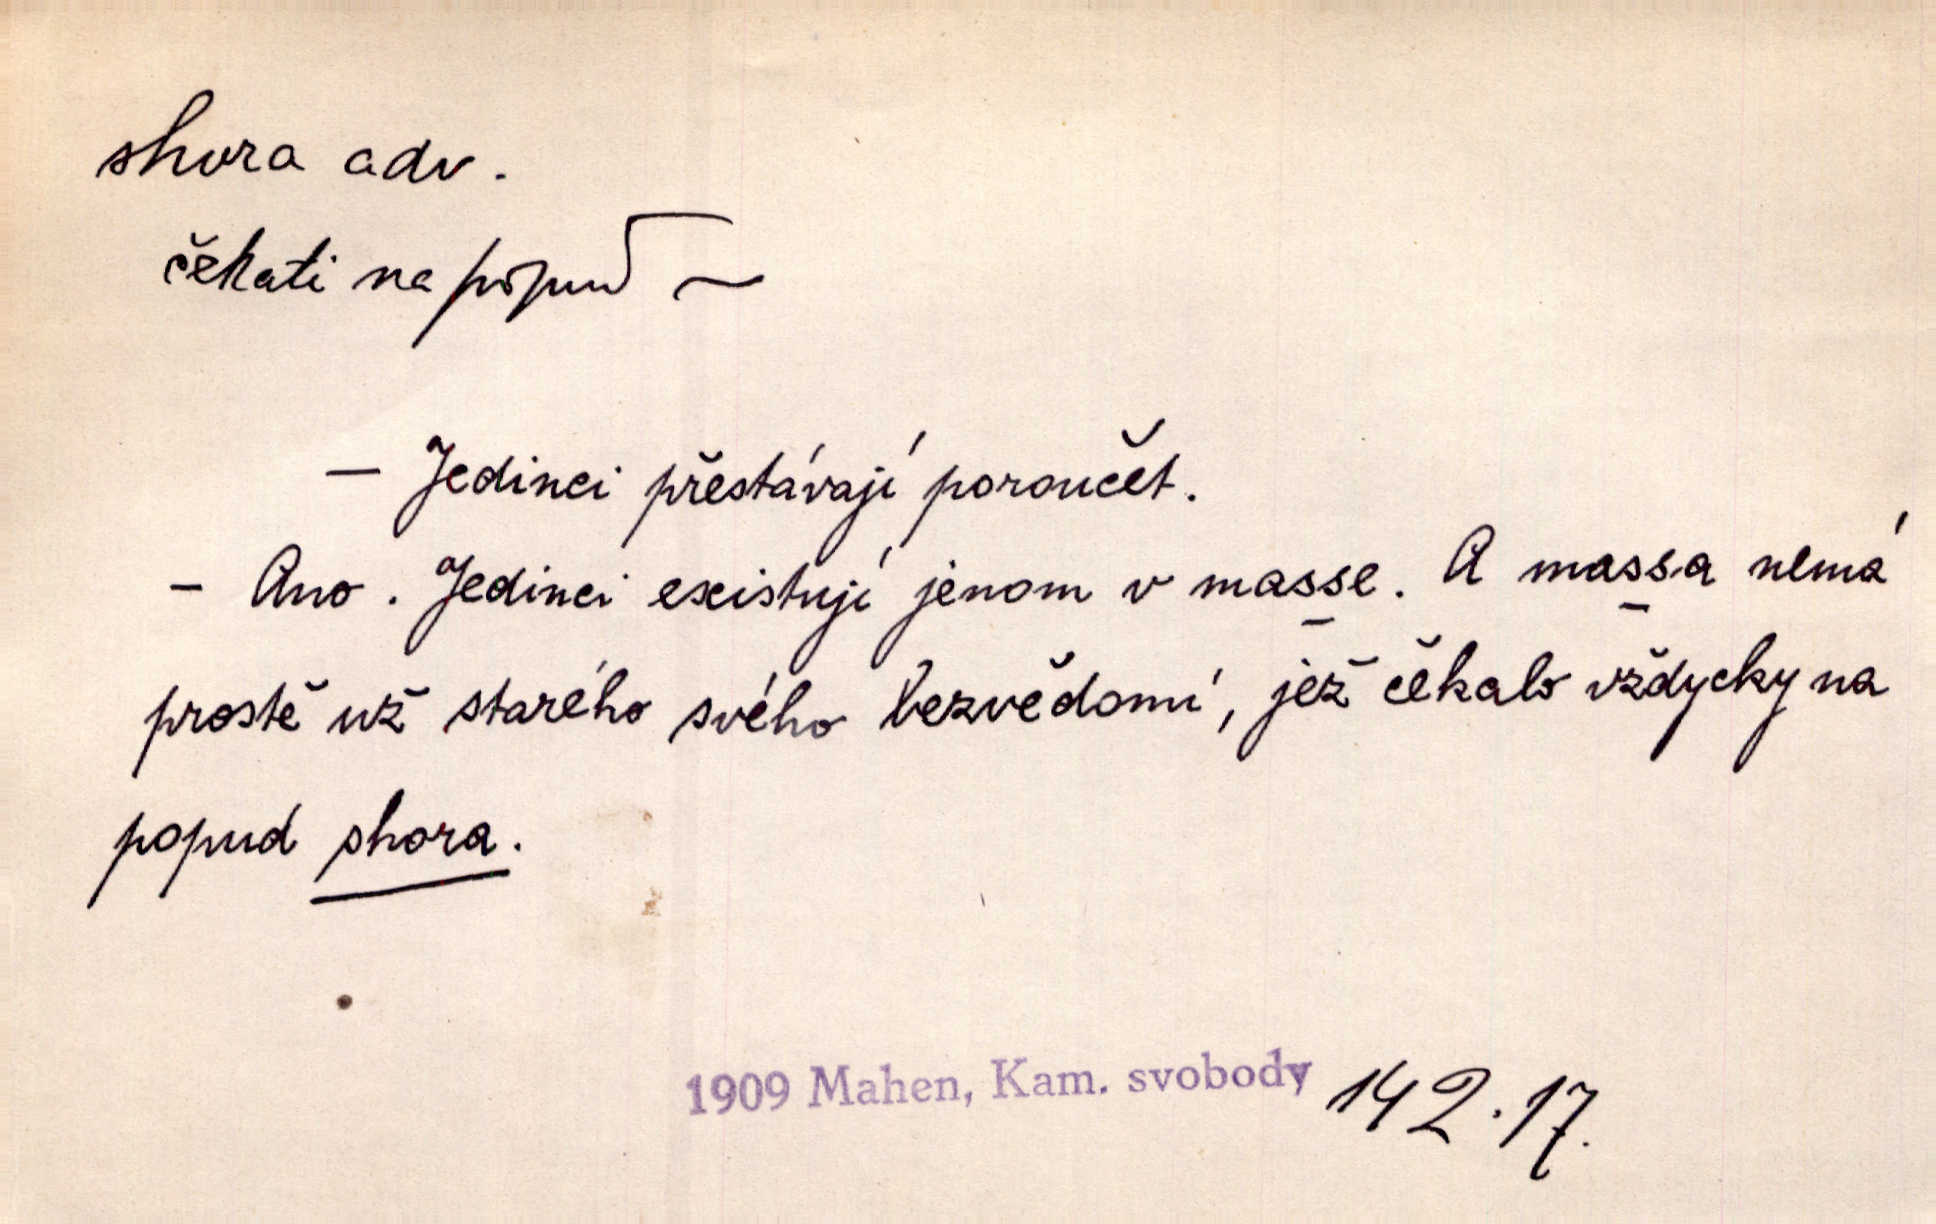 shora adv.
čekati na popud ~
— Jedinci přestávají poroučet.
- Ano. Jedinci existují jenom v masse. A massa nemá
prostě už starého svého bezvědomí, jež čekalo vždycky na
popud shora.
1909 Mahen, Kam. svobody 142.17.